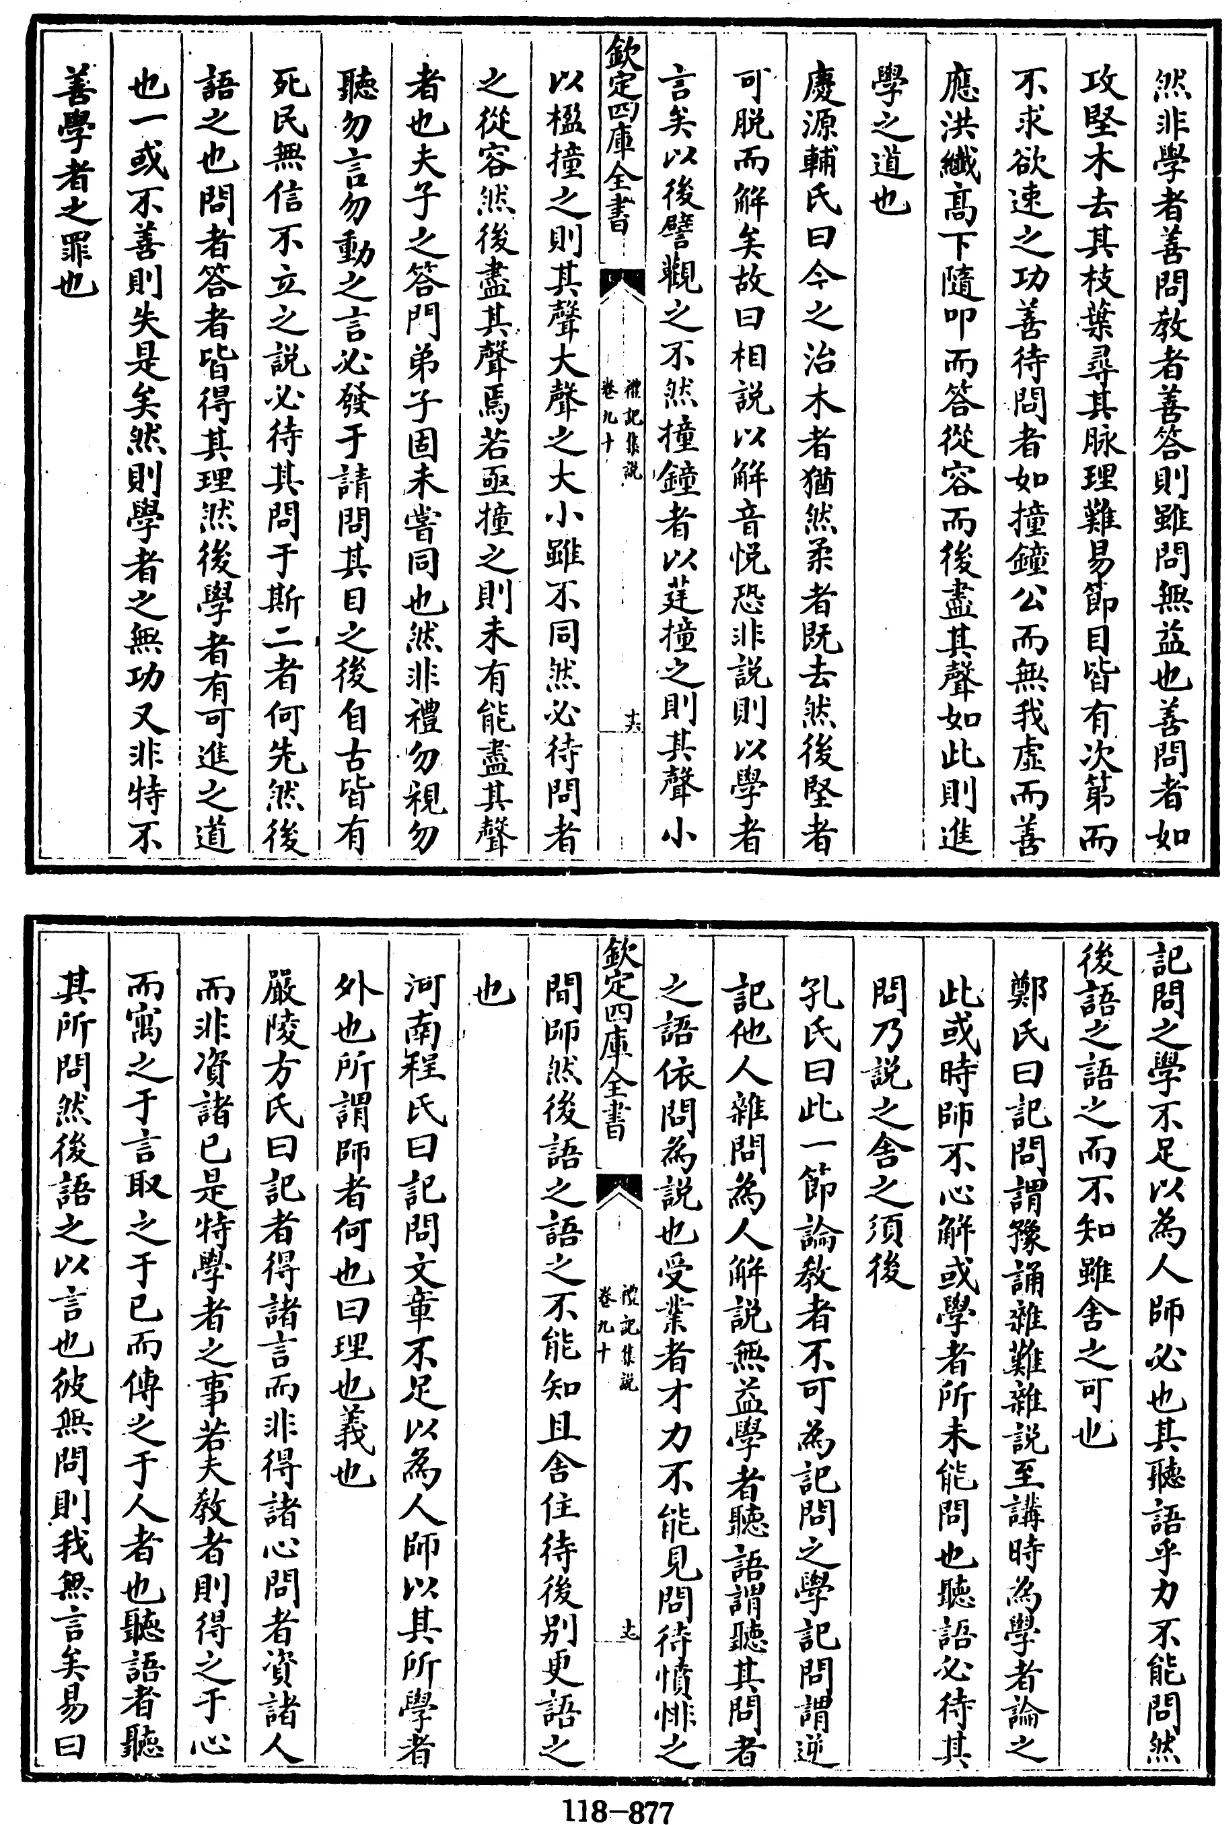 然非學者善問教者善答則雖問無益也善問者如
攻堅木去其枝葉尋其脉理難易節目皆有次第而
不求欲速之功善待問者如撞鐘公而無我虛而善
應洪纖髙下隨叩而答從容而後盡其聲如此則進
學之道也
慶源輔氏曰今之治木者猶然柔者既去然後堅者
可脱而解矣故曰相説以解音悦恐非説則以學者
言矣以後譬觀之不然撞鐘者以莛撞之則其聲小
欽定四庫全書
禮記集説
卷九十
十六
以楹撞之則其聲大聲之大小雖不同然必待問者
之從容然後盡其聲焉若亟撞之則未有能盡其聲
者也夫子之答門弟子固未嘗同也然非禮勿視勿
聽勿言勿動之言必發于請問其目之後自古皆有
死民無信不立之説必待其問于斯二者何先然後
語之也問者答者皆得其理然後學者有可進之道
也一或不善則失是矣然則學者之無功又非特不
善學者之罪也
記問之學不足以為人師必也其聽語乎力不能問然
後語之語之而不知雖舍之可也
鄭氏曰記問謂豫誦雜難雜説至講時為學者論之
此或時師不心解或學者所未能問也聽語必待其
問乃説之舍之須後
孔氏曰此一節論教者不可為記問之學記問謂逆
記他人雜問為人解説無益學者聽語謂聽其問者
之語依問為説也受業者才力不能見問待憤悱之
欽定四庫全書
禮記集説
卷九十
十七
間師然後語之語之不能知且舍住待後别更語之
也
河南程氏曰記問文章不足以為人師以其所學者
外也所謂師者何也曰理也義也
嚴陵方氏曰記者得諸言而非得諸心問者資諸人
而非資諸已是特學者之事若夫教者則得之于心
而寓之于言取之于已而傳之于人者也聽語者聽
其所問然後語之以言也彼無問則我無言矣易曰
118-877